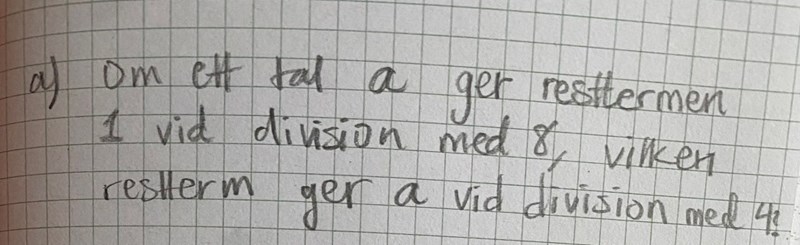 a) Om ett tal a ger resttermen
1 vid division med 8, vilken
restterm ger a vid division med 4?